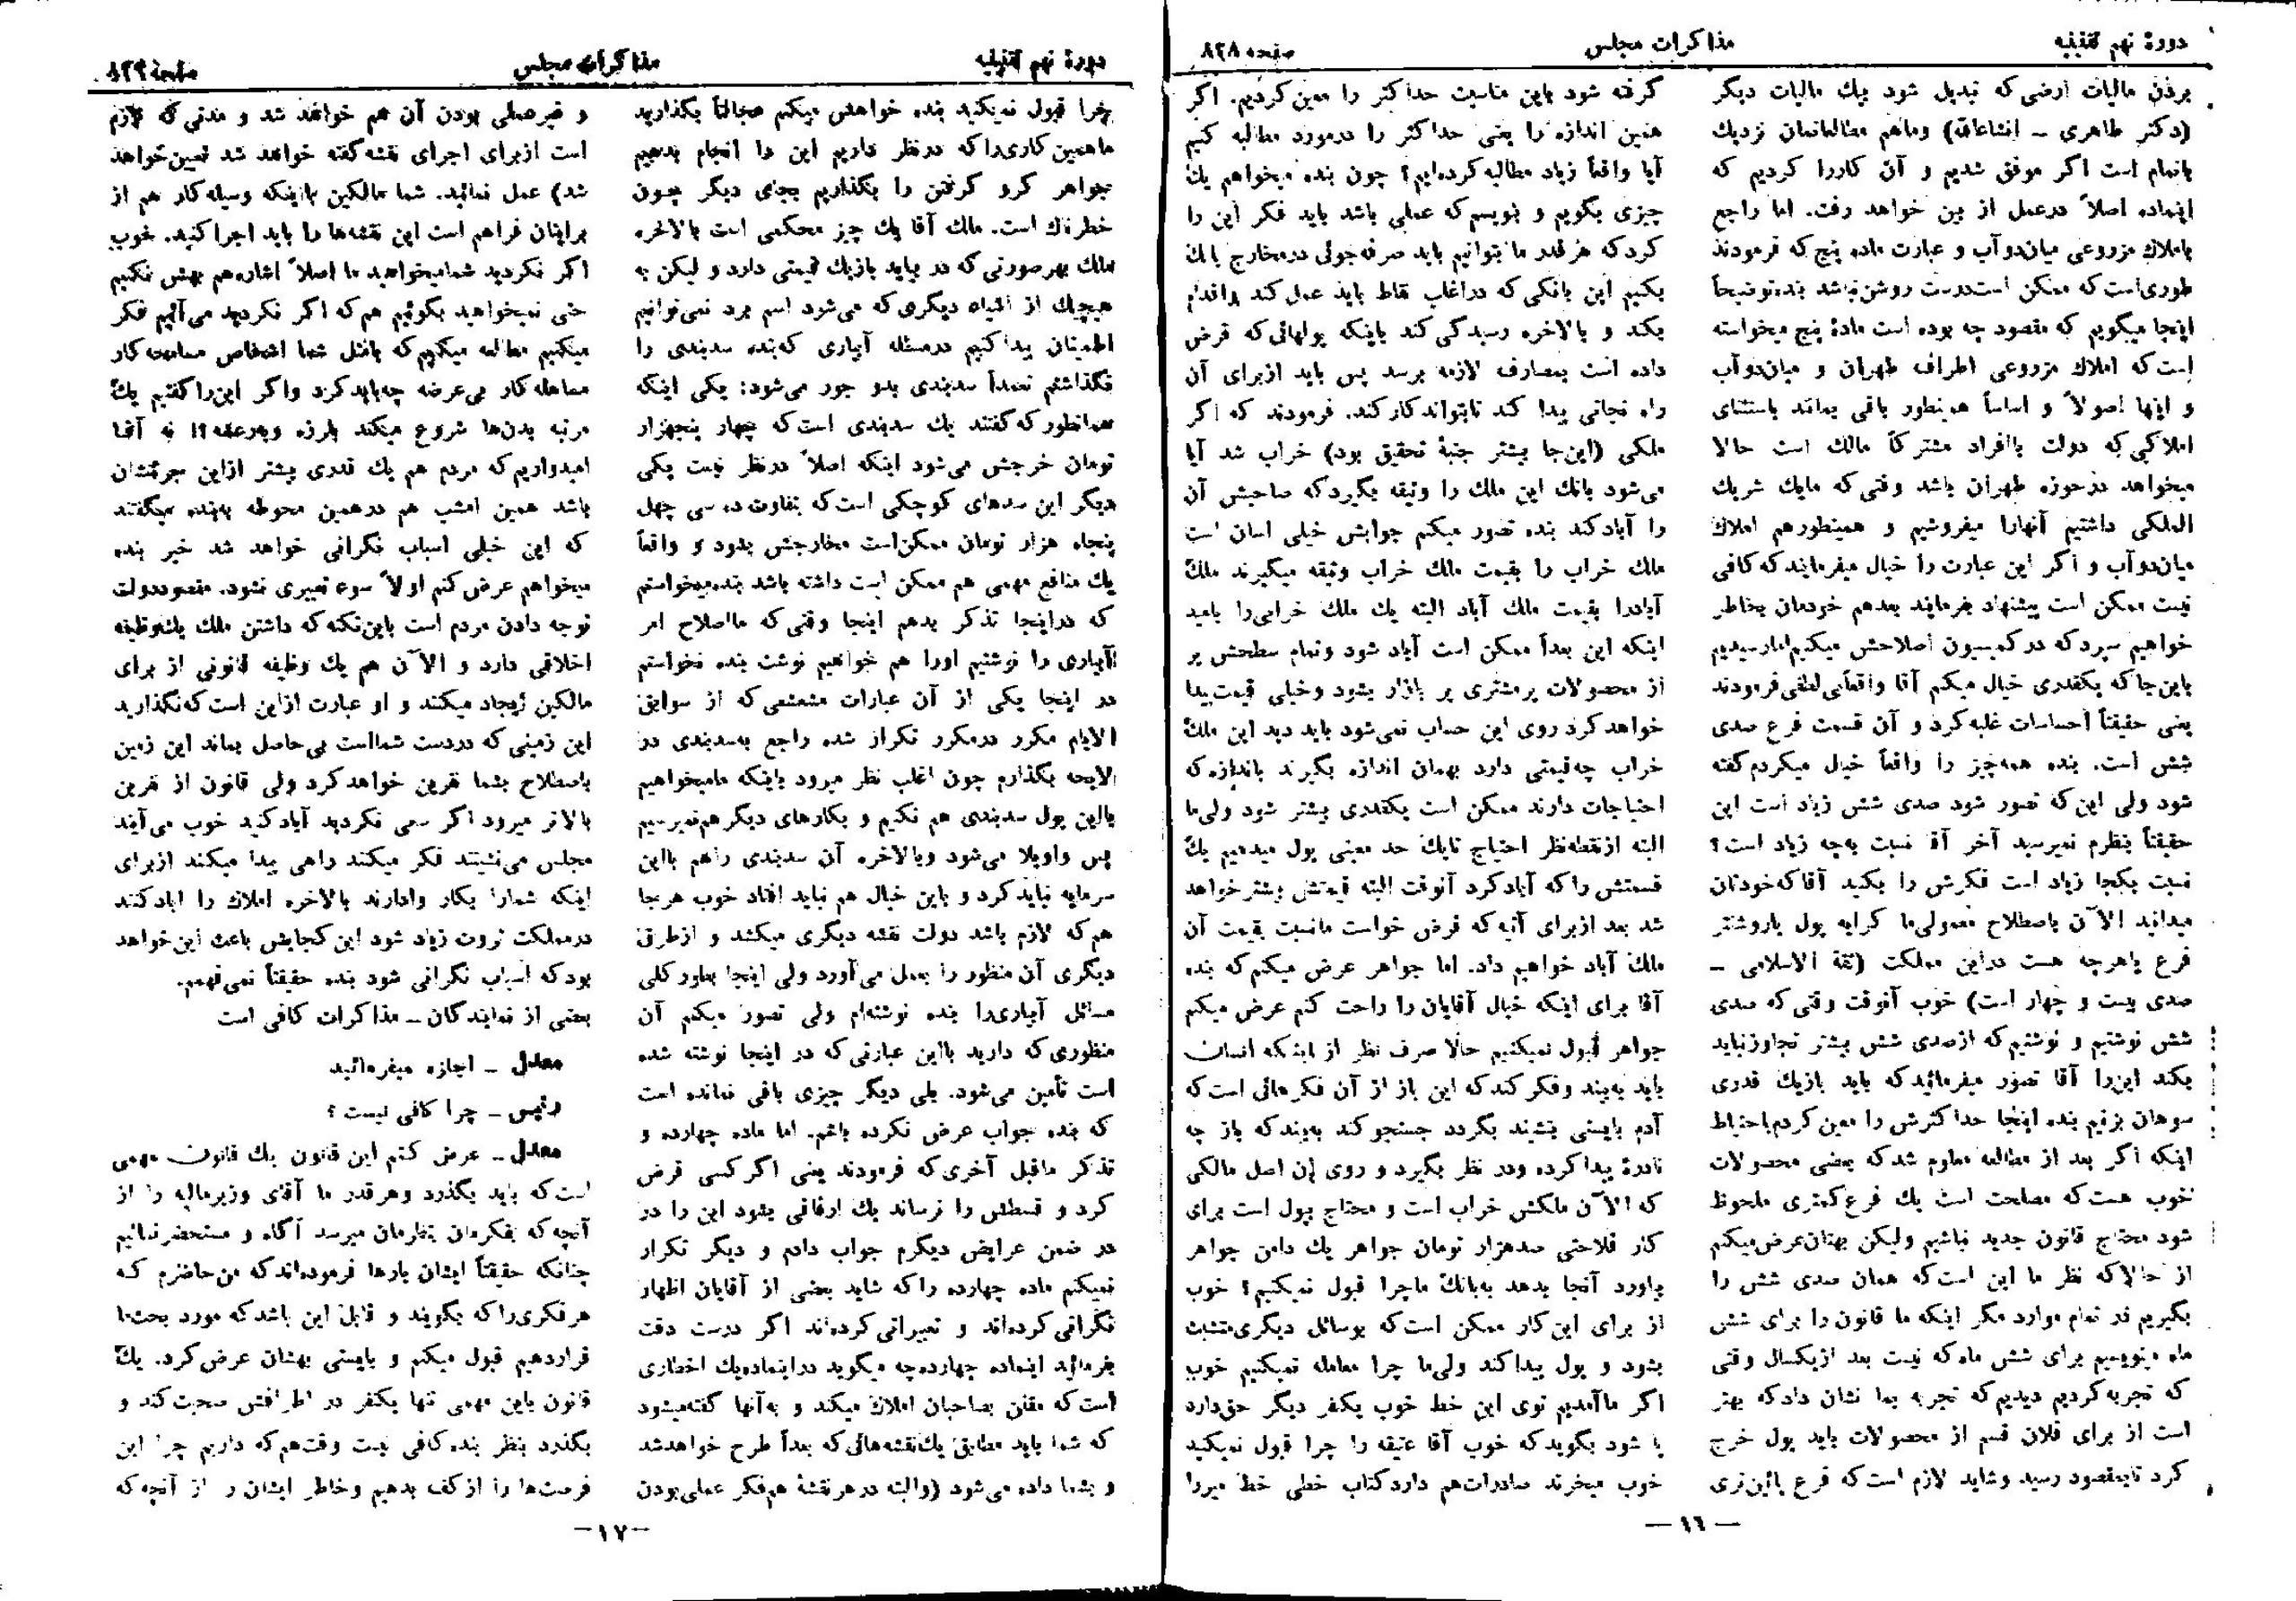 دورهٔ نهم تقنینیه
مذاکرات مجلس
صفحه ۸۲۸
بردن مالیات ارضی که تبدیل شود بیك مالیات دیگر
(دکتر طاهری ـ انشاءالله) وماهم مطالعاتمان نزدیك
باتمام است اگر موفق شدیم و آن کاررا کردیم که
اینماده اصلاً درعمل از بین خواهد رفت. اما راجع
باملاك مزروعی میان‌دوآب و عبارت ماده پنج که فرمودند
طوری‌است که ممکن است‌درست روشن‌نباشد بنده‌توضیحاً
اینجا میگویم که مقصود چه بوده است مادهٔ پنج میخواسته
است‌که املاك مزروعی اطراف طهران و میان‌دوآب
و اینها اصولاً و اساساً همینطور باقی بماند باستثنای
املاکی‌که دولت باافراد مشترکاً مالك است حالا
میخواهد درحوزه طهران باشد وقتی‌که مایك شریك
الملکی داشتیم آنهارا میفروشیم و همینطورهم املاك
میان‌دوآب و اگر این عبارت را خیال میفرمایند که کافی
نیست ممکن است پیشنهاد بفرمایند بعدهم خودمان بخاطر
خواهیم سپرد که در کمیسیون اصلاحش میکنیم‌امارسیدیم
باین‌جا که یکقدری خیال میکنم آقا واقعاًبی‌لطفی‌فرمودند
یعنی حقیقتاً احساسات غلبه کرد و آن قسمت فرع صدی
شش است. بنده همه‌چیز را واقعاً خیال میکردم گفته
شود ولی این که تصور شود صدی شش زیاد است این
حقیقتاً بنظرم نمیرسید آخر آقا نسبت به‌چه زیاد است؟
نسبت بکجا زیاد است فکرش را بکنید آقا که خودتان
میدانید الآن باصطلاح معمولی‌ما کرایه پول یاروشنتر
فرع یاهرچه هست دراین مملکت (ثقة الاسلامی ـ
صدی بیست و چهار است) خوب آنوقت وقتی که صدی
شش نوشتیم و نوشتیم که ازصدی شش بیشتر تجاوزنباید
بکند این‌را آقا تصور میفرمائید که باید بازیك قدری
سوهان بزنیم بنده اینجا حداکثرش را معین کردم‌باحتیاط
اینکه اگر بعد از مطالعه معلوم شد که بعضی محصولات
خوب هست که مصلحت است یك فرع کمتری ملحوظ
شود محتاج قانون جدید نباشیم ولیکن بهتان‌عرض‌میکنم
از حالا که نظر ما این است‌که همان صدی شش را
بگیریم در تمام موارد مگر اینکه ما قانون را برای شش
ماه مینویسیم برای شش ماه که نیست بعد ازیکسال وقتی
که تجربه کردیم دیدیم که تجربه بما نشان داد که بهتر
است از برای فلان قسم از محصولات باید پول خرج
کرد تابمقصود رسید وشاید لازم است‌که فرع پائین‌تری
گرفته شود باین مناسبت حداکثر را معین کردیم. اگر
همین اندازه را یعنی حداکثر را درمورد مطالبه کنیم
آیا واقعاً زیاد مطالبه کرده‌ایم؟ چون بنده میخواهم یك
چیزی بگویم و بنویسم که عملی باشد باید فکر این را
کرد که هرقدر ما بتوانیم باید صرفه‌جوئی درمخارج بانك
بکنیم این بانکی که دراغلب نقاط باید عمل کند واقدام
بکند و بالاخره رسیدگی کند باینکه پولهائی که قرض
داده است بمصارف لازمه برسد پس باید ازبرای آن
راه نجاتی پیدا کند تابتواند کارکند. فرمودند که اگر
ملکی (این‌جا بیشتر جنبهٔ تحقیق بود) خراب شد آیا
می‌شود بانك این ملك را وثیقه بگیرد که صاحبش آن
را آباد کند بنده تصور میکنم جوابش خیلی آسان است
ملك خراب را بقیمت ملك خراب وثیقه میگیرند ملك
آبادرا بقیمت ملك آباد البته یك ملك خرابی‌را بامید
اینکه این بعداً ممکن است آباد شود وتمام سطحش پر
از محصولات پرمشتری پر بازار بشود وخیلی قیمت‌پیدا
خواهد کرد روی این حساب نمی‌شود باید دید این ملك
خراب چه‌قیمتی دارد بهمان اندازه بگیرند باندازه که
احتیاجات دارند ممکن است یکقدری بیشتر شود ولی‌ما
البته ازنقطه‌نظر احتیاج تایك حد معینی پول میدهیم یك
قسمتش را که آباد کرد آنوقت البته قیمتش بیشترخواهد
شد بعد ازبرای آتیه که قرض خواست مانسبت بقیمت آن
ملك آباد خواهیم داد. اما جواهر عرض میکنم که بنده
آقا برای اینکه خیال آقایان را راحت کنم عرض میکنم
جواهر قبول نمیکنیم حالا صرف نظر از اینکه انسان
باید به‌بیند وفکر کند که این باز از آن فکرهائی است‌که
آدم بایستی بنشیند بگردد جستجو کند به‌بیند که باز چه
نادرهٔ پیدا کرده ودر نظر بگیرد و روی این اصل مالکی
که الآن ملکش خراب است و محتاج پول است برای
کار فلاحتی صدهزار تومان جواهر یك دامن جواهر
بیاورد آنجا بدهد به‌بانك ماچرا قبول نمیکنیم؟ خوب
از برای این‌کار ممکن است‌که بوسائل دیگری‌متشبث
بشود و پول پیدا کند ولی‌ما چرا معامله نمیکنیم خوب
اگر ما آمدیم توی این خط خوب یکنفر دیگر حق‌دارد
پا شود بگوید که خوب آقا عتیقه را چرا قبول نمیکنید
خوب میخرند صادرات‌هم دارد کتاب خطی خط میررا
— ۱۶ —
دورهٔ نهم تقنینیه
مذاکرات مجلس
صفحه ۸۲۹
چرا قبول نمیکنید بنده خواهش میکنم عجالتاً بگذارید
ماهمین کاری‌را که درنظر داریم این را انجام بدهیم
جواهر گرو گرفتن را بگذاریم بجای دیگر چون
خطرناك است. ملك آقا یك چیز محکمی است بالاخره
ملك بهرصورتی که در بیاید بازیك قیمتی دارد و لیکن به
هیچیك از اشیاء دیگری که می‌شود اسم برد نمی‌توانیم
اطمینان پیدا کنیم درمسئله آبیاری که‌بنده سدبندی را
نگذاشتم تعمداً سدبندی بدو جور می‌شود: یکی اینکه
همانطور که گفتند یك سدبندی است‌که چهار پنجهزار
تومان خرجش می‌شود اینکه اصلاً درنظر نیست یکی
دیگر این سدهای کوچکی است‌که بتفاوت ده سی چهل
پنجاه هزار تومان ممکن‌است مخارجش بشود و واقعاً
یك منافع مهمی هم ممکن است داشته باشد بنده‌میخواستم
که دراینجا تذکر بدهم اینجا وقتی که مااصلاح امر
آبیاری را نوشتیم اورا هم خواهیم نوشت بنده نخواستم
در اینجا یکی از آن عبارات مشعشعی که از سوابق
الایام مکرر درمکرر تکرار شده راجع به‌سدبندی در
لایحه بگذارم چون اغلب نظر میرود باینکه مامیخواهیم
بااین پول سدبندی هم نکنیم و بکارهای دیگرهم‌نمیرسیم
پس واویلا می‌شود وبالاخره آن سدبندی راهم بااین
سرمایه نباید کرد و باین خیال هم نباید افتاد خوب هرجا
هم‌که لازم باشد دولت نقشه دیگری میکشد و ازطرق
دیگری آن منظور را بعمل می‌آورد ولی اینجا بطورکلی
مسائل آبیاری‌را بنده نوشته‌ام ولی تصور میکنم آن
منظوری که دارید بااین عبارتی که در اینجا نوشته شده
است تأمین می‌شود. بلی دیگر چیزی باقی نمانده است
که بنده جواب عرض نکرده باشم. اما ماده چهارده و
تذکر ماقبل آخری که فرمودند یعنی اگرکسی قرض
کرد و قسطش را نرساند یك ارفاقی بشود این را در
در ضمن عرایض دیگرم جواب دادم و دیگر تکرار
نمیکنم ماده چهارده را که شاید بعضی از آقایان اظهار
نگرانی کرده‌اند و تعبیراتی کرده‌اند اگر درست دقت
بفرمائید اینماده چهارده‌چه میگوید دراینماده‌یك اخطاری
است‌که مقنن بصاحبان املاك میکند و به‌آنها گفته‌میشود
که شما باید مطابق یك‌نقشه‌هائی که بعداً طرح خواهدشد
و بشما داده می‌شود (والبته در هرنقشهٔ هم‌فکر عملی‌بودن
و غیرعملی بودن آن هم خواهد شد و مدتی که لازم
است ازبرای اجرای نقشه گفته خواهد شد تعیین‌خواهد
شد) عمل نمائید. شما مالکین بااینکه وسیله کار هم از
برایتان فراهم است این نقشه‌ها را باید اجرا کنید. خوب
اگر نکردید شمامیخواهید ما اصلاً اشاره‌هم بهش نکنیم
حتی نمیخواهید بگوئیم هم‌که اگر نکردید می‌آئیم فکر
میکنیم مطالعه میکنیم که بامثل شما اشخاص مسامحه‌کار
مماطله‌کار بی‌عرضه چه‌باید کرد واگر این‌را گفتیم یك
مرتبه بدن‌ها شروع میکند بلرزه وبه‌رعشه؟! نه آقا
امیدواریم که مردم هم یك قدری بیشتر ازاین جرئتشان
باشد همین امشب هم درهمین محوطه به‌بنده میگفتند
که این خیلی اسباب نگرانی خواهد شد خیر بنده
میخواهم عرض کنم اولاً سوء تعبیری نشود. مقصوددولت
توجه دادن مردم است باین‌نکته که داشتن ملك یك‌وظیفه
اخلاقی دارد و الآن هم یك وظیفه قانونی از برای
مالکین ایجاد میکند و او عبارت ازاین است که‌نگذارید
این زمینی که دردست شمااست بی‌حاصل بماند این زمین
باصطلاح بشما نفرین خواهد کرد ولی قانون از نفرین
بالاتر میرود اگر سعی نکردید آباد کنید خوب می‌آیند
مجلس می‌نشینند فکر میکنند راهی پیدا میکنند ازبرای
اینکه شمارا بکار وادارند بالاخره املاك را آباد کنند
درمملکت ثروت زیاد شود این کجایش باعث این‌خواهد
بود که اسباب نگرانی شود بنده حقیقتاً نمی‌فهمم.
بعضی از نمایندگان ـ مذاکرات کافی است
معدل ـ اجازه میفرمائید
رئیس ـ چرا کافی نیست؟
معدل ـ عرض کنم این قانون یك قانون مهمی
است‌که باید بگذرد وهرقدر ما آقای وزیرمالیه را از
آنچه که بفکرمان بنظرمان میرسد آگاه و مستحضرنمائیم
چنانکه حقیقتاً ایشان بارها فرموده‌اند که من حاضرم که
هرفکری‌را که بگویند و قابل این باشد که مورد بحث‌ما
قراردهیم قبول میکنم و بایستی بهشان عرض کرد. یك
قانون باین مهمی تنها یکنفر در اطرافش صحبت کند و
بگذرد بنظر بنده کافی نیست وقت‌هم‌که داریم چرا این
فرصت‌ها را از کف بدهیم وخاطر ایشان را از آنچه که
—۱۷—